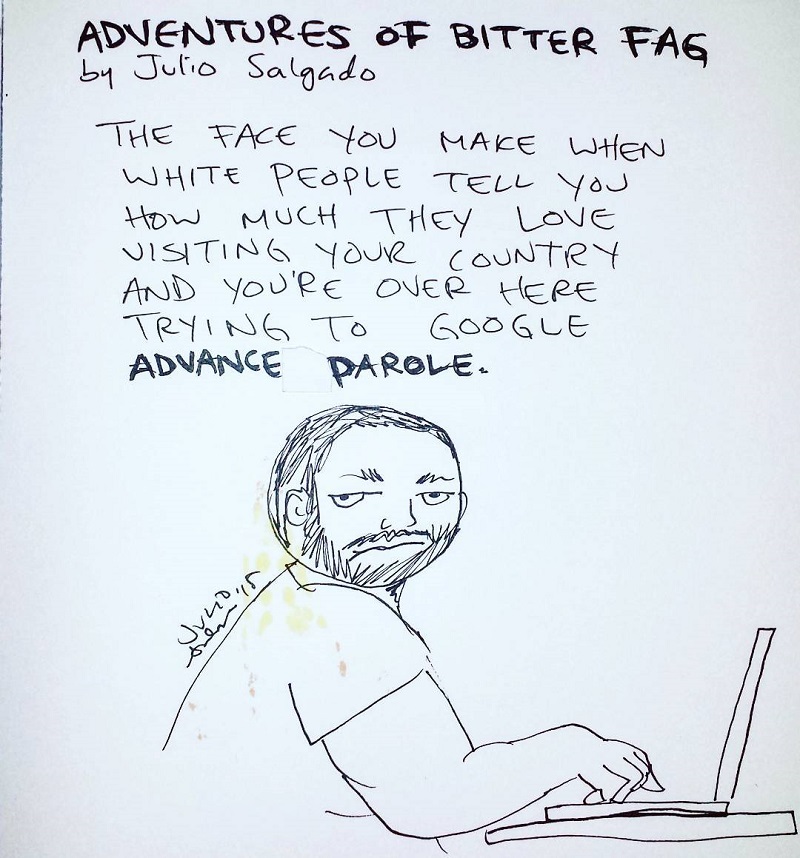 ADVENTURES OF BITTER FAG
by Julio Salgado
THE FACE YOU MAKE WHEN
WHITE PEOPLE TELL YOU
HOW MUCH THEY LOVE
VISITING YOUR COUNTRY
AND YOU'RE OVER HERE
TRYING TO GOOGLE
ADVANCE PAROLE.
JULIO '15